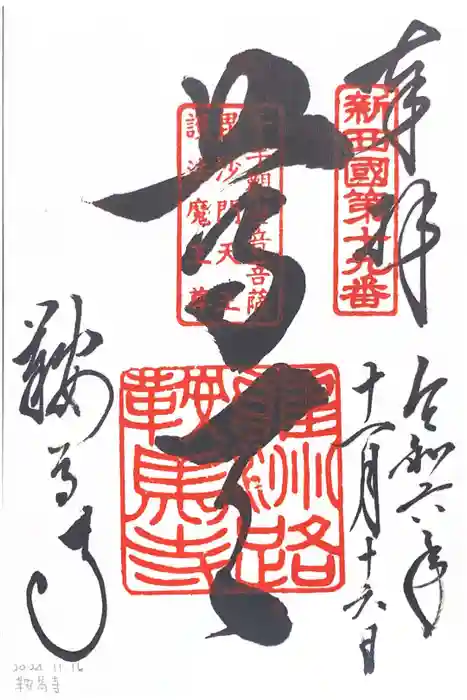 奉拝
新西國第十九番
令和六年
十一月十六日
尊天
千手觀世音菩薩
毘沙門天王
護法魔王尊
雍州路
鞍馬寺
鞍馬寺
2024.11.16
鞍馬寺